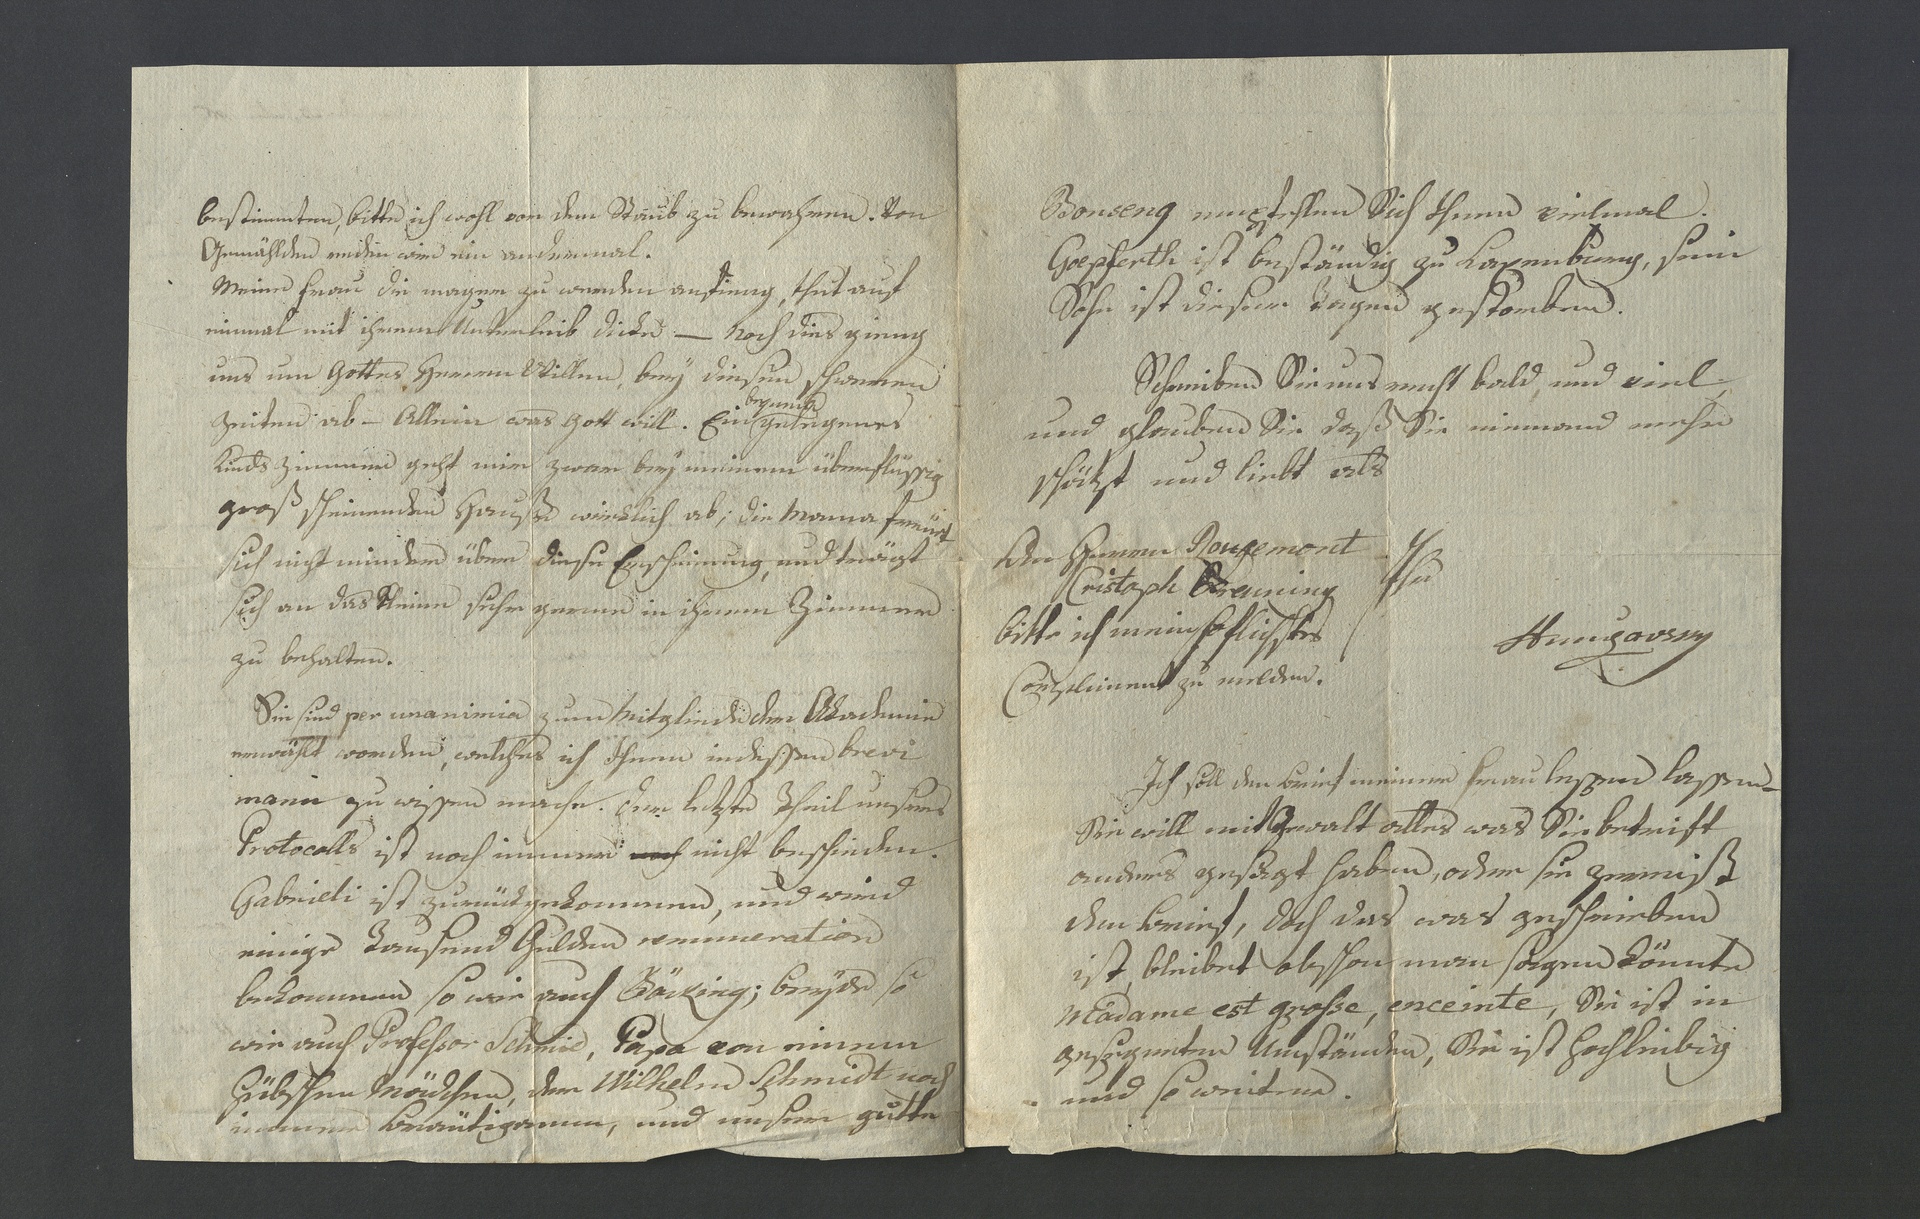 bestimmten, bitte ich wohl von dem Staub zu bewahren. Von
Gemählden reden wir ein andermal.
Meine Frau die mager zu werden anfieng, thut auf
einmal mit ihrem Unterleib dicke — Noch dies gieng
uns um Gottes Herren Willen, bey diesen schweren
Zeiten ab – Allein was Gott will. Ein gelegenes
bequemes
Kinds Zimmer geht mir zwar bey meinem überflüssig
groß scheinenden Hauße wirklich ab; die Mama freüet
sich nicht minder über diese Erscheinung, und trägt
sich an das Kleine sehr gerne in ihrem Zimmer
zu behalten.
Sie sind per unanimia zum Mitgliede der Akademie
erwählt worden, welches ich Ihnen indessen brevi
manu zu wissen mache. Der letzte Theil unsers
Protocolls ist noch immer noch nicht beschieden.
Gabrieli ist zurückgekommen, und wird
einige Tausend Gulden remuneration
bekommen so wie auch Böcking; beyde so
wie auch Professor Schmid, Papa von einem
hübschen Mädchen, der Wilhelm Schmidt noch
immer Bräutigamm, und unser gutte
Bonseng empfehlen Sich Ihnen vielmal.
Goepferth ist beständig zu Laxenburg, sein
Sohn ist dieser Tagen gestorben.
Schreiben Sie uns recht bald und viel,
und glauben Sie daß Sie niemand mehr
schätzt und liebt als
Den Herren Rougemont
Cristoph Breuning
bitte ich mein höflichstes
Compliment zu melden.
Ihr
Hunczovsky
Ich soll den Brief meiner Frau lessen lassen –
Sie will mit Gewalt alles was Sie betrift
anders gesagt haben, oder sie zerreißt
den Brief, doch das was geschrieben
ist, bleibet obschon man sagen könnte
Madame est grosse, enceinte, Sie ist in
gesegneten Umständen, Sie ist hochleibig
und so weiter.